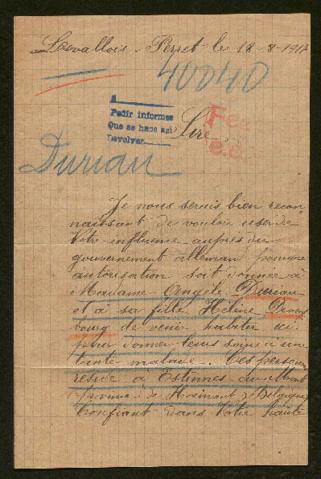 Levallois-Perret le 18-8-1917
40040
A
Pedir informes
Que se hace asi
Devolver
Sire
Durian
Je vous serais bien recon
naissant de vouloir user de
Votre influence auprès du
gouvernement alleman pour que
autorisation soit donnée à
Madame Angèle Durian
et à sa fille Hélène
bourg de venir habiter ici
pour donner leurs soins à une
tante malade. Ces personnes
réside à Estinnes au Mont
province de Hainaut Belgique
Confiant dans Votre haute